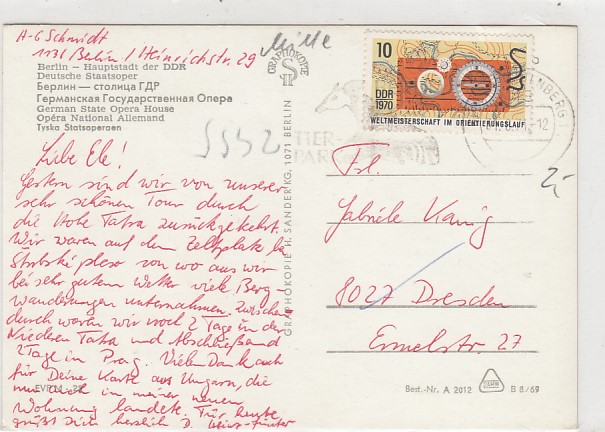 A-G Schmidt
1131 Berlin / Heinrichstr. 29
Mitte
Berlin – Hauptstadt der DDR
Deutsche Staatsoper
Берлин — столица ГДР
Германская Государственная Опера
German State Opera House
Opéra National Allemand
Tyska Statsoperaen
5542
Liebe Ele!
Gestern sind wir von unserer
sehr schönen Tour durch
die Hohe Tatra zurückgekehrt.
Wir waren auf dem Zeltplatz bei
Strbské pleso von wo aus wir
bei sehr gutem Wetter viele Berg-
wanderungen unternahmen. Zwischen-
durch waren wir noch 2 Tage in der
Niederen Tatra und Abschließend
2 Tage in Prag. Vielen Dank auch
für Deine Karte aus Ungarn, die
nun auch in meiner neuen
Wohnung landete. Für heute
grüßt Dich herzlich D. Heinz-Günter
EVP M -,25
GRAPHOKOPIE
GRAPHOKOPIE H. SANDER KG, 1071 BERLIN
TIER-
PARK
10
DDR
1970
WELTMEISTERSCHAFT IM ORIENTIERUNGSLAUF
-12
Frl.
Gabriele Kanig
8027 Dresden
Ermelstr. 27
Best.-Nr. A 2012
B 8/69